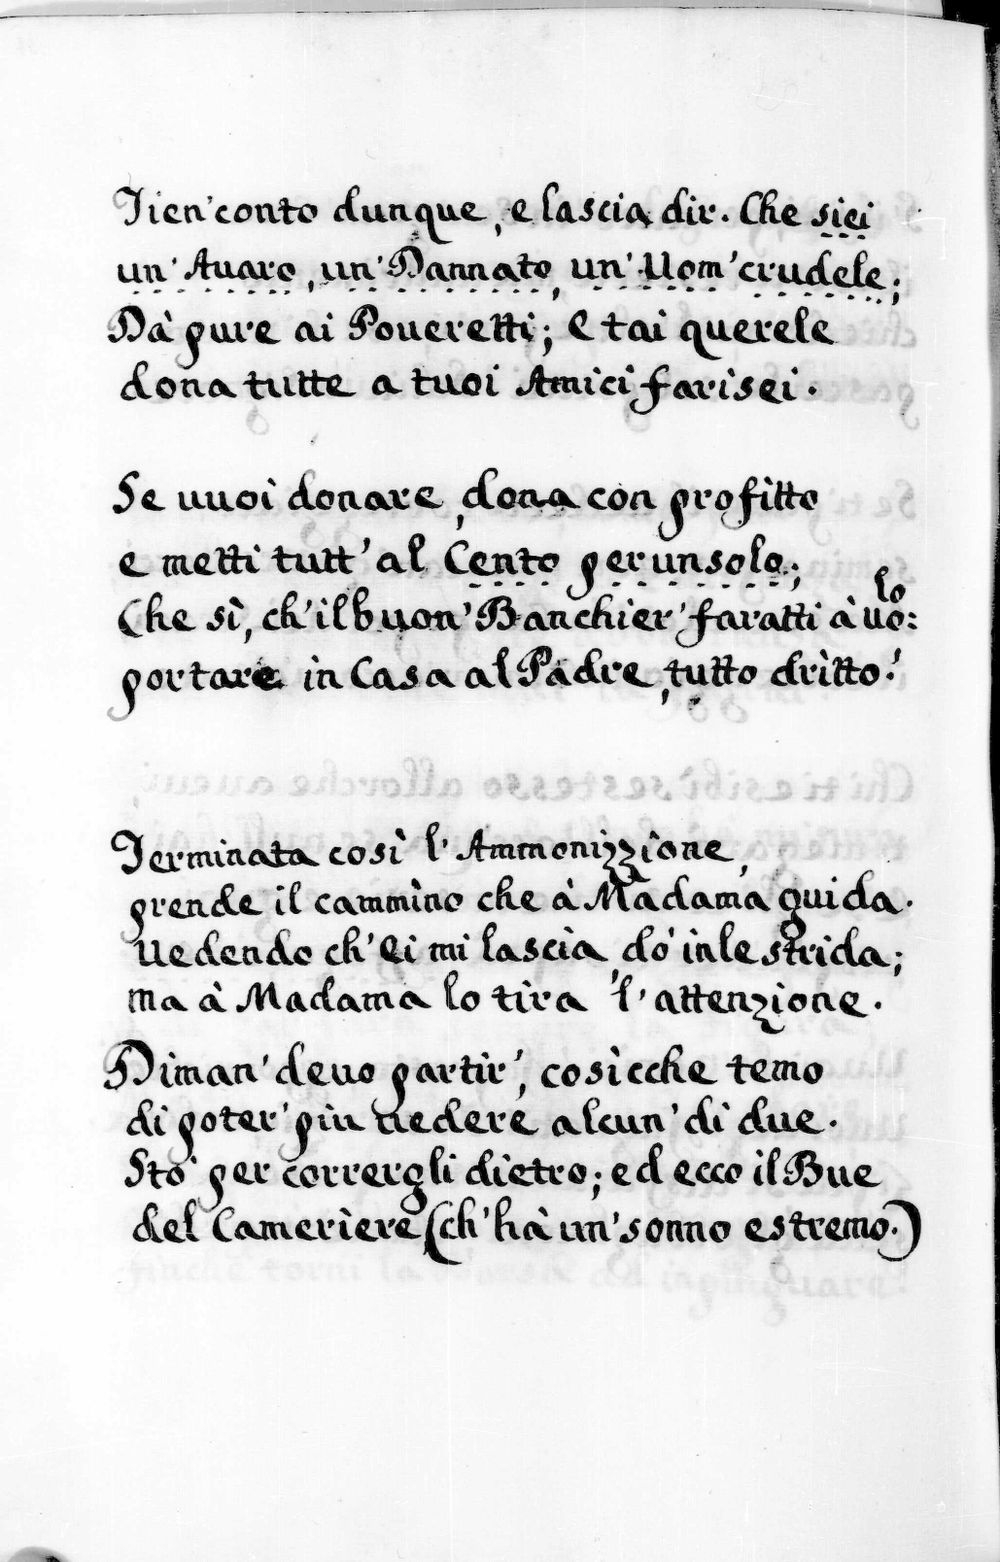 Tien' conto dunque, e lascia dir. Che siei
un' Auaro, un' Dannato, un' Uom' crudele;
Dà pure ai Poueretti; e tai querele
dona tutte a tuoi Amici farisei.
Se uuoi donare, dona con profitto
e metti tutt' al Cento per un solo;
Che sì, ch' il buon' Banchier' faratti à uo:
lo
portare in Casa al Padre, tutto dritto!
Terminata così l' Ammonizzione,
prende il cammino che à Madama guida.
Uedendo ch' ei mi lascia, dò in le strida;
ma à Madama lo tira 'l' attenzione.
Diman' deuo partir', cosìcche temo
di poter' più uedere alcun' di due.
Stò per corrergli dietro; ed ecco il Bue
del Camerière (ch' hà un' sonno estremo.)